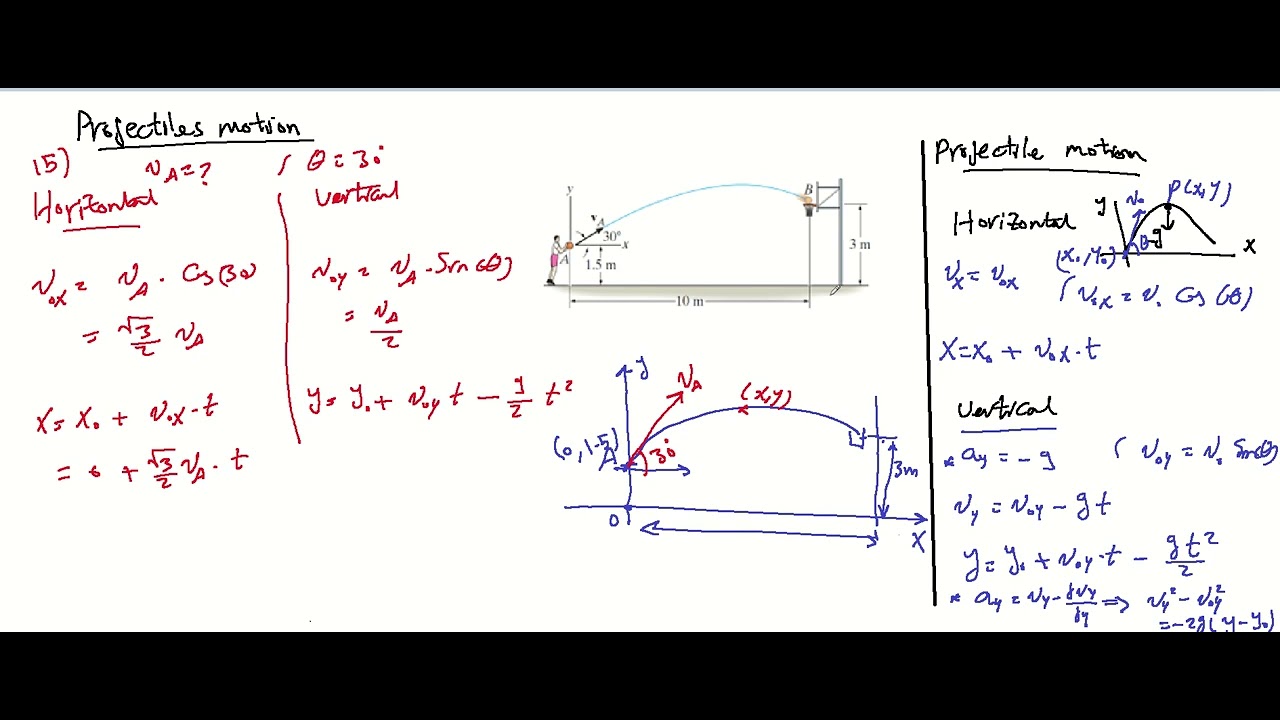 Projectiles motion
15) v_A = ? , θ = 30°
Horizontal
v_ox = v_A · Cos(30)
= √3/2 v_A
x = x_0 + v_ox · t
= 0 + √3/2 v_A · t
Vertical
v_oy = v_A · Sin(θ)
= v_A/2
y = y_0 + v_oy t − g/2 t²
y
v_A
30°
x
A
1.5 m
B
3 m
10 m
y
v_A
(x,y)
(0,1.5)
A
30°
3m
0
X
Projectile motion
Horizontal
y
v_0
P(x,y)
-g
θ
(x_0,y_0)
X
v_x = v_ox
, v_ox = v_0 Cos(θ)
X = X_0 + v_ox · t
Vertical
* a_y = −g , v_oy = v_0 Sin(θ)
v_y = v_oy − g t
y = y_0 + v_oy · t − g t²/2
* a_y = v_y · dv_y/dy ⇒ v_y² − v_oy²
= −2g(y − y_0)